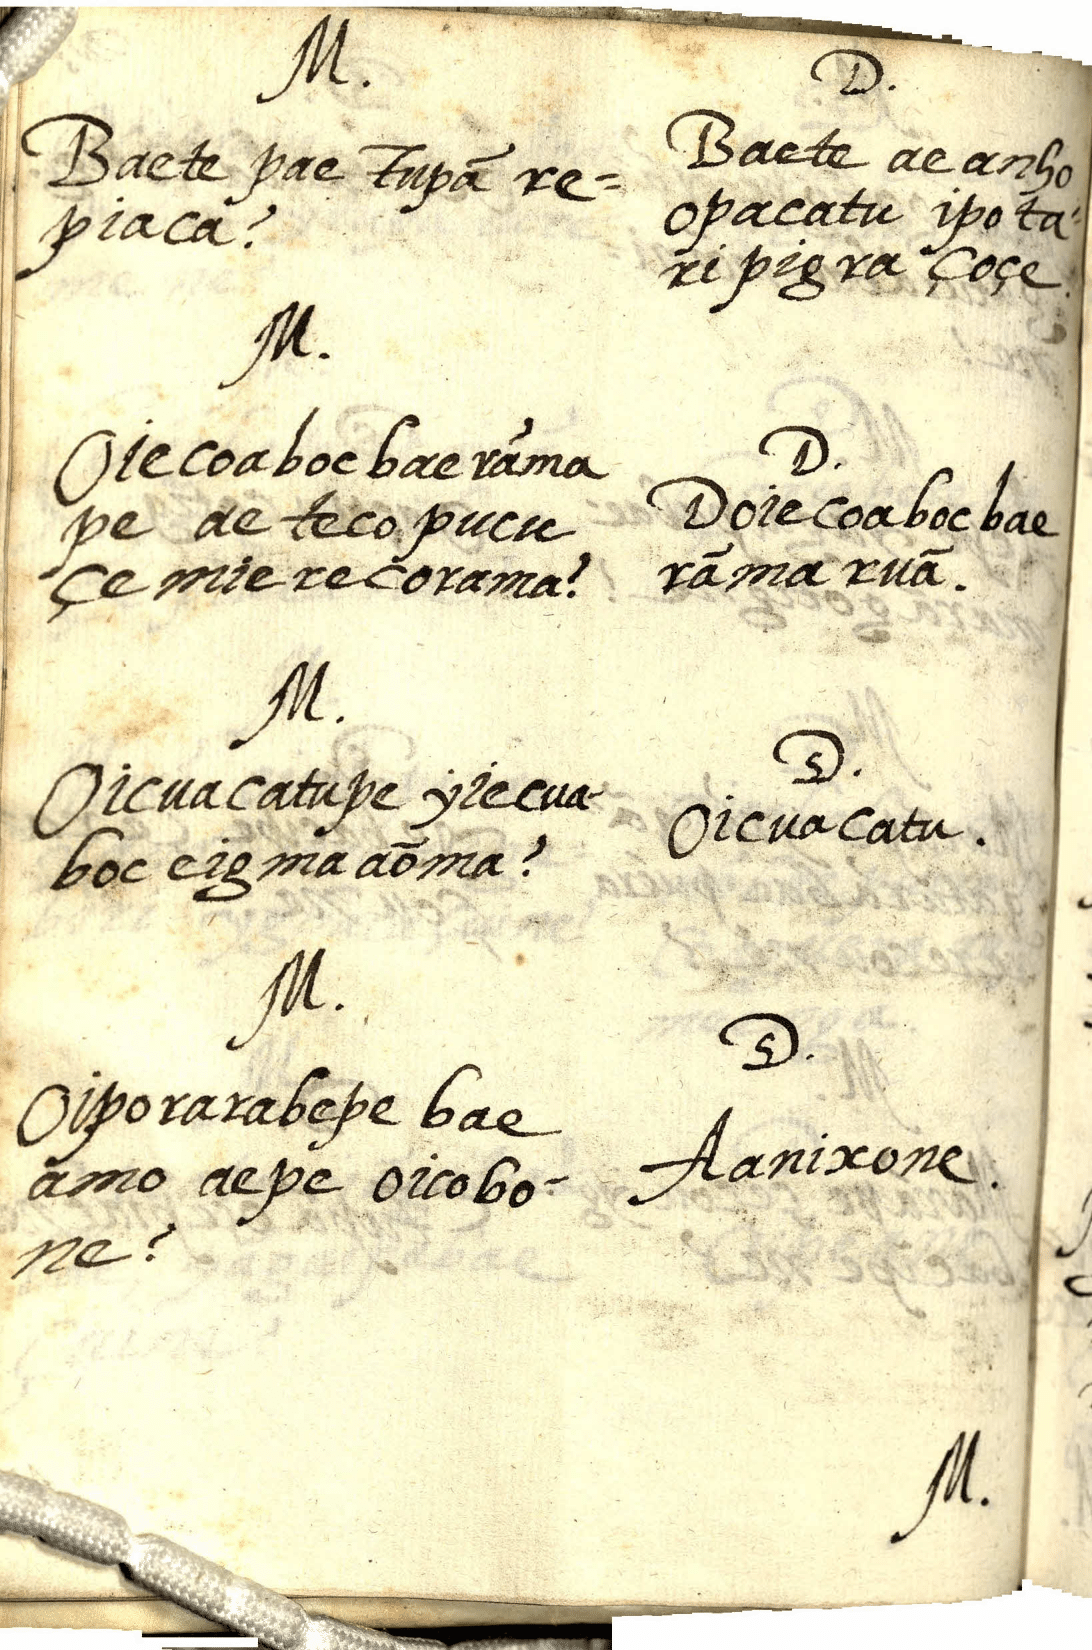 M.
Baete pae Tupã re=
piaca?
D.
Baete ae anho
opacatu ipota-
ri pigra çoçe.
M.
Oiecoaboc bae rãma
pe ae teco pucu
çemierecorama?
D.
Doiecoaboc bae
rãma ruã.
M.
Oicuacatupe yiecua-
boc eigma aõma?
D.
Oicuacatu.
M.
Oiporarabepe bae
amo aepe oicobo-
ne?
D.
Aanixone.
M.